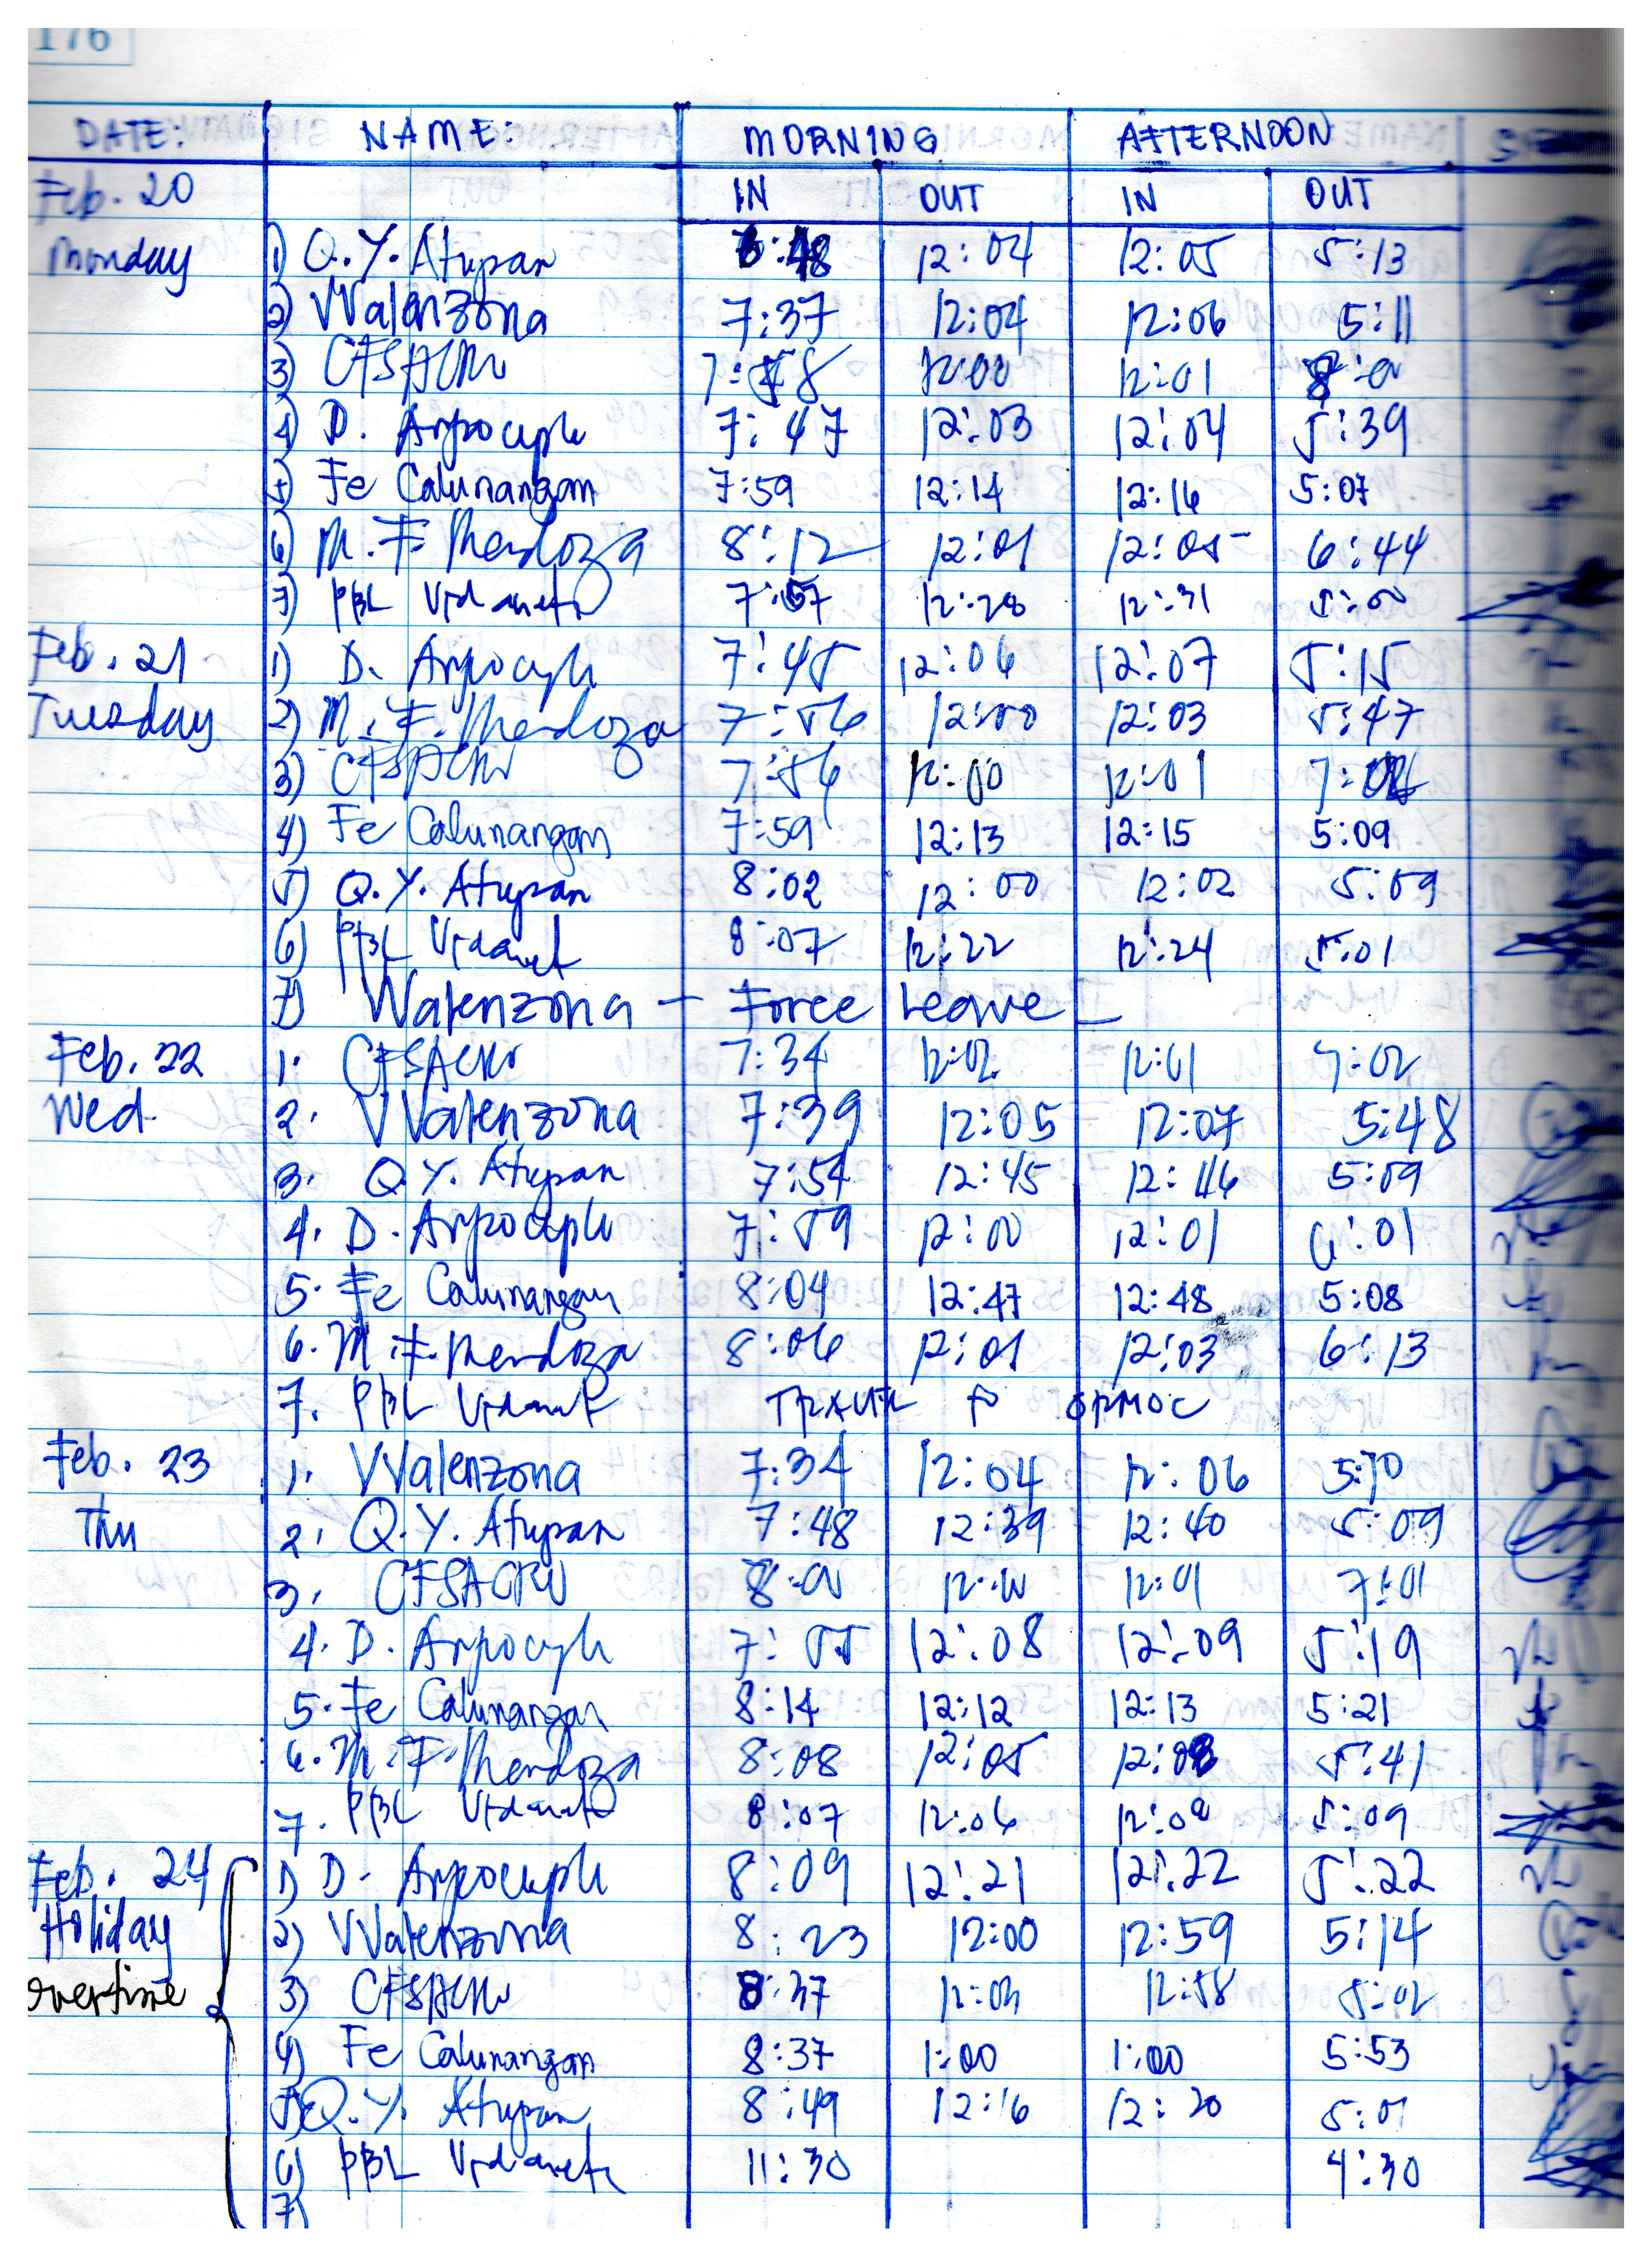 176
DATE: NAME: MORNING AFTERNOON
Feb. 20 IN OUT IN OUT
Monday 1) Q.Y. Atupan 12:04 12:05 5:13
2) VValenzona 7:37 12:04 12:06 5:11
3) 7:58 12:00 12:01
4) D. 7:47 12:03 12:04 5:39
5) Fe Calunangan 7:59 12:14 12:16 5:07
6) M.F. Mendoza 8:12 12:01 12:05 6:44
7) PBL 7:57 12:28 12:31 5:00
Feb. 21 1) D. 7:45 12:06 12:07 5:15
Tuesday 2) M.F. Mendoza 7:56 12:00 12:03 5:47
3) 7:56 12:00 12:01
4) Fe Calunangan 7:59 12:13 12:15 5:09
5) Q.Y. Atupan 8:02 12:00 12:02 5:09
6) PBL 8:07 12:22 12:24 5:01
7) VValenzona - Force Leave -
Feb. 22 1. 7:34 12:02 12:01 7:02
Wed. 2. VValenzona 7:39 12:05 12:07 5:48
3. Q.Y. Atupan 7:54 12:45 12:46 5:09
4. D. 7:59 12:00 12:01 6:01
5. Fe Calunangan 8:04 12:47 12:48 5:08
6. M.F. Mendoza 8:06 12:01 12:03 6:13
7. PBL ORMOC
Feb. 23 1. VValenzona 7:34 12:04 12:06 5:10
Thu 2. Q.Y. Atupan 7:48 12:39 12:40 5:09
3. 8:00 12:00 12:01 7:01
4. D. 7:55 12:08 12:09 5:19
5. Fe Calunangan 8:14 12:12 12:13 5:21
6. M.F. Mendoza 8:08 12:05 12:08 5:41
7. PBL 8:07 12:06 12:08 5:09
Feb. 24 1) D. 8:09 12:21 12:22 5:22
Holiday 2) VValenzona 8:23 12:00 12:59 5:14
overtime 3) 8:37 12:58 5:02
4) Fe Calunangan 8:37 1:00 1:00 5:53
5) Q.Y. Atupan 8:49 12:16 12:20 5:01
6) PBL 11:30 4:30
7)